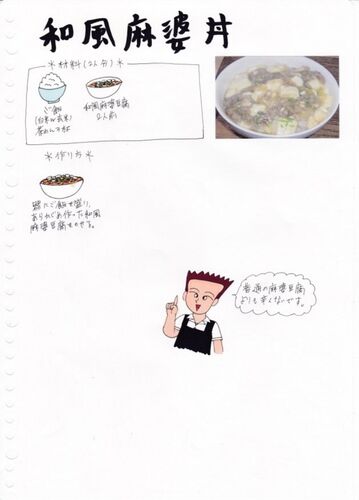 和風麻婆丼
＊材料(2人分)＊
ご飯
(白米or玄米)
茶わん2杯
和風麻婆豆腐
2人前
＊作り方＊
器にご飯を盛り、
あらかじめ作った和風
麻婆豆腐をのせる。
普通の麻婆豆腐
よりも辛くないです。